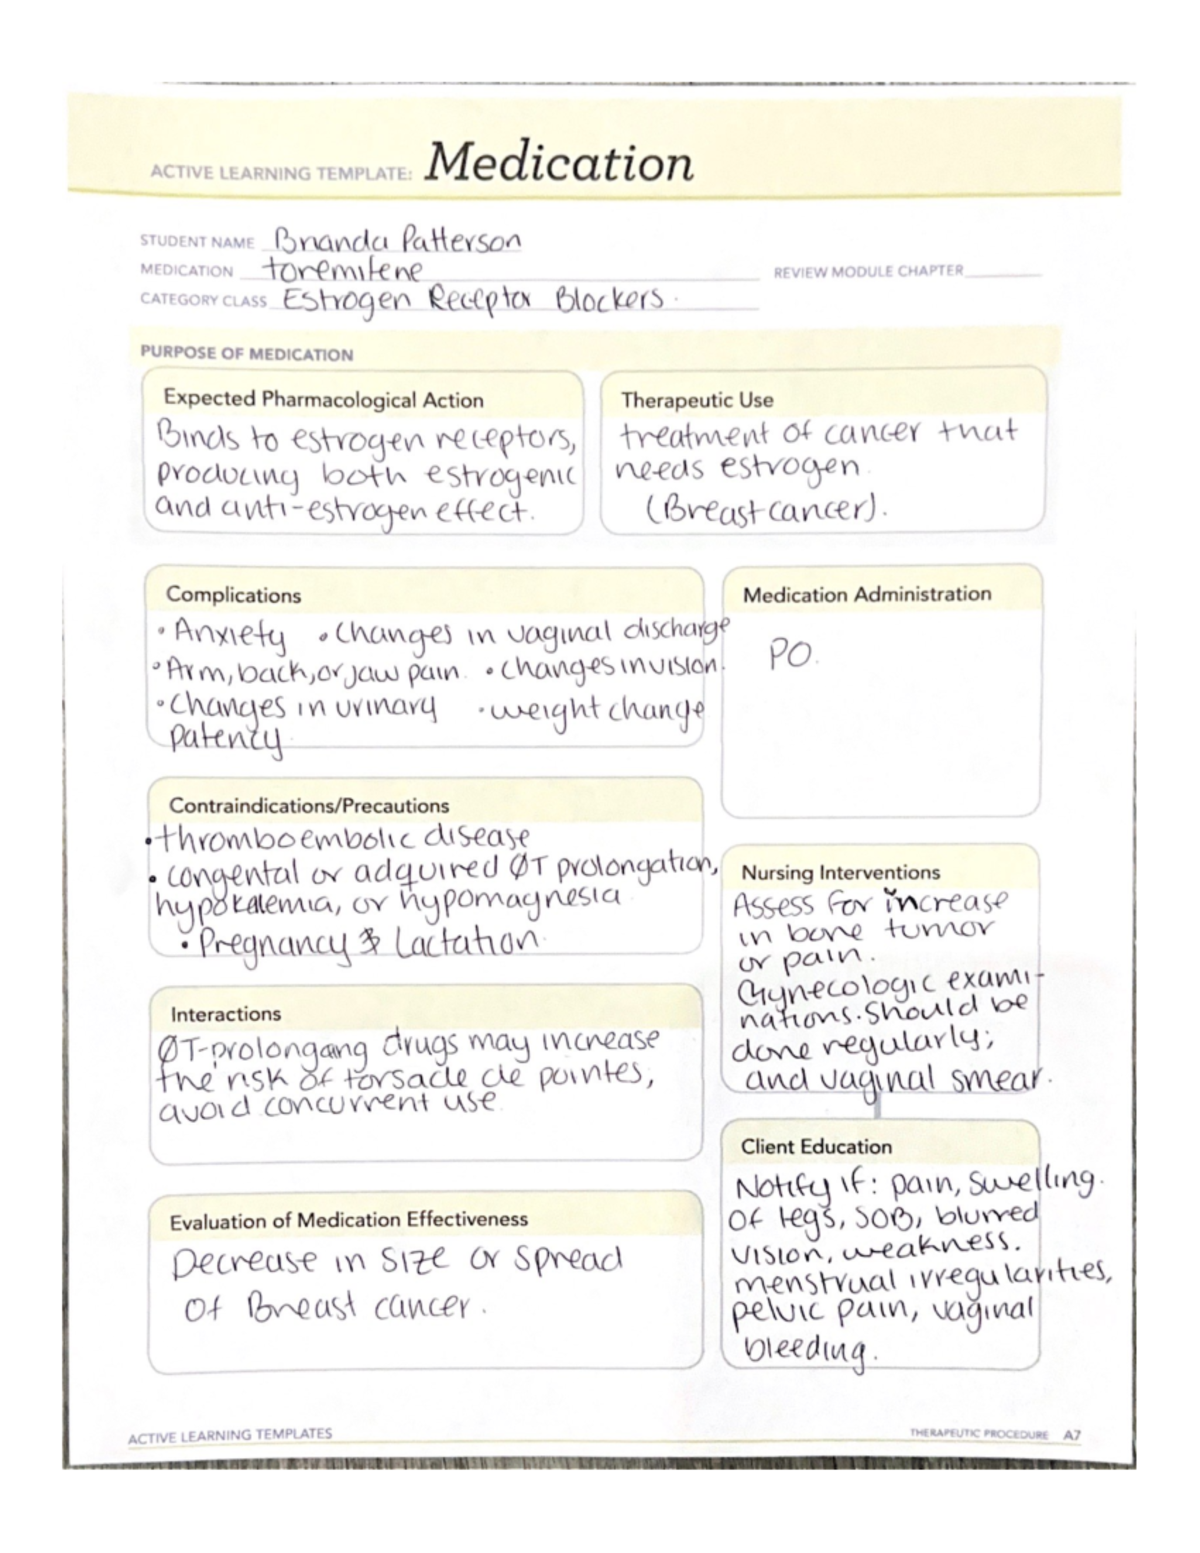 ACTIVE LEARNING TEMPLATE: Medication
STUDENT NAME Brianda Patterson
MEDICATION toremifene
REVIEW MODULE CHAPTER
CATEGORY CLASS Estrogen Receptor Blockers.
PURPOSE OF MEDICATION
Expected Pharmacological Action
Binds to estrogen receptors,
producing both estrogenic
and anti-estrogen effect.
Therapeutic Use
treatment of cancer that
needs estrogen.
(Breast cancer).
Complications
• Anxiety • Changes in vaginal discharge
• Arm, back, or jaw pain. • changes in vision.
• Changes in urinary • weight change
patency
Medication Administration
PO.
Contraindications/Precautions
• thromboembolic disease
• congental or adquired QT prolongation,
hypokalemia, or hypomagnesia.
• Pregnancy & Lactation.
Nursing Interventions
Assess for increase
in bone tumor
or pain.
Gynecologic exami-
nations. Should be
done regularly;
and vaginal smear.
Interactions
QT-prolongang drugs may increase
the risk of torsade de pointes,
avoid concurrent use.
Client Education
Notify if: pain, swelling.
of legs, SOB, blurred
vision, weakness.
menstrual irregularities,
pelvic pain, vaginal
bleeding.
Evaluation of Medication Effectiveness
Decrease in size or spread
of Breast cancer.
ACTIVE LEARNING TEMPLATES
THERAPEUTIC PROCEDURE A7